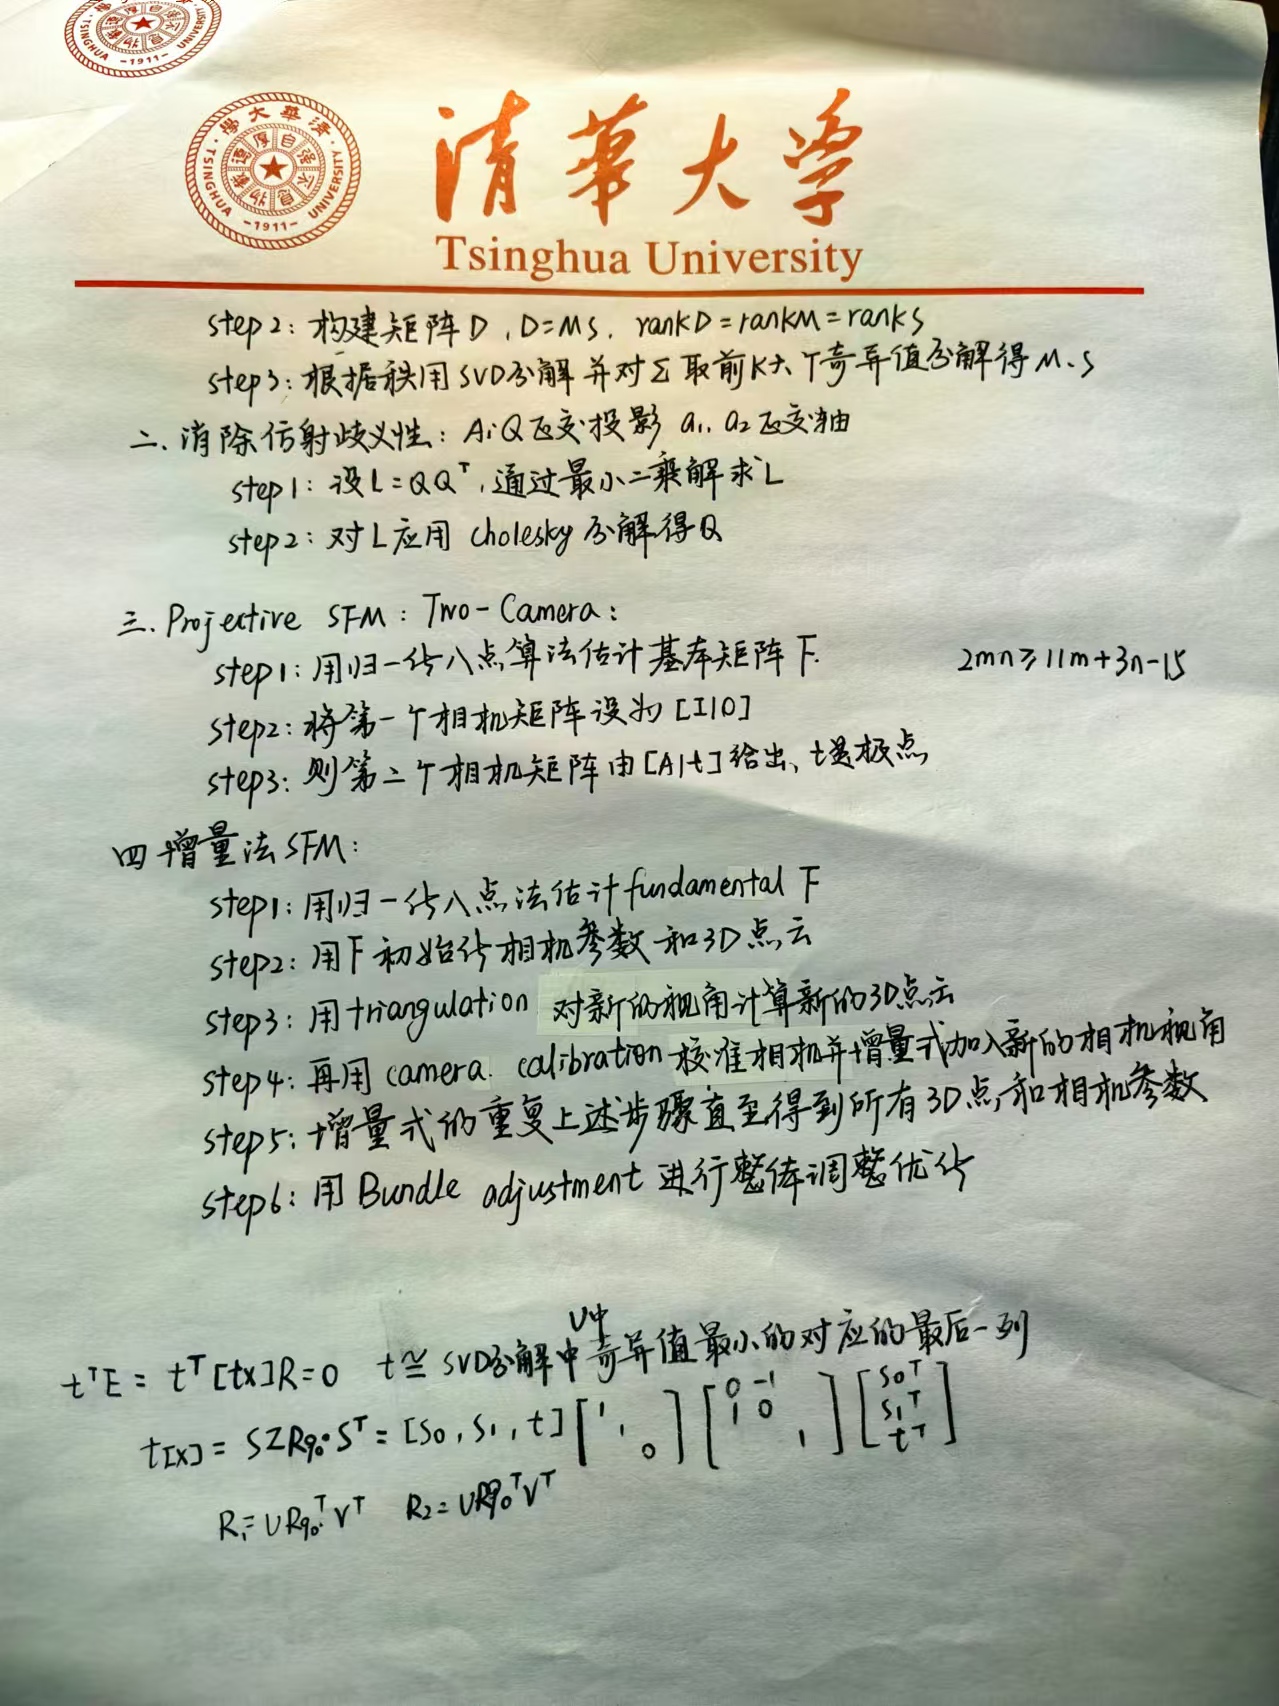 TSINGHUA UNIVERSITY
-1911-
清華大學
TSINGHUA UNIVERSITY
自强不息厚德載物
-1911-
清華大學
Tsinghua University
step2: 构建矩阵D, D=MS. rankD=rankM=rankS
step3: 根据秩用SVD分解并对Σ取前K大个奇异值分解得M、S
二、消除仿射歧义性: AiQ正交投影 a₁, a₂正交轴
step1: 设L=QQᵀ, 通过最小二乘解求L
step2: 对L应用 cholesky分解得Q
三. Projective SFM: Two-Camera:
step1: 用归一化八点算法估计基本矩阵F.
2mn≥11m+3n-15
step2: 将第一个相机矩阵设为[I|0]
step3: 则第二个相机矩阵由[A|t]给出, t是极点
四 增量法SFM:
step1: 用归一化八点法估计fundamental F
step2: 用F初始化相机参数和3D点云
step3: 用triangulation 对新的视角计算新的3D点云
step4: 再用camera. calibration 校准相机并增量式加入新的相机视角
step5: 增量式的重复上述步骤直至得到所有3D点和相机参数
step6: 用Bundle adjustment 进行整体调整优化
U中
tᵀE = tᵀ[tx]R=0 t≅ SVD分解中奇异值最小的对应的最后一列
t[x] = SZR₉₀°Sᵀ = [S₀, S₁, t] [1 1 0] [0 -1 1 0 1] [S₀ᵀ S₁ᵀ tᵀ]
R₁=UR₉₀°ᵀVᵀ R₂=UR₉₀ᵀVᵀ